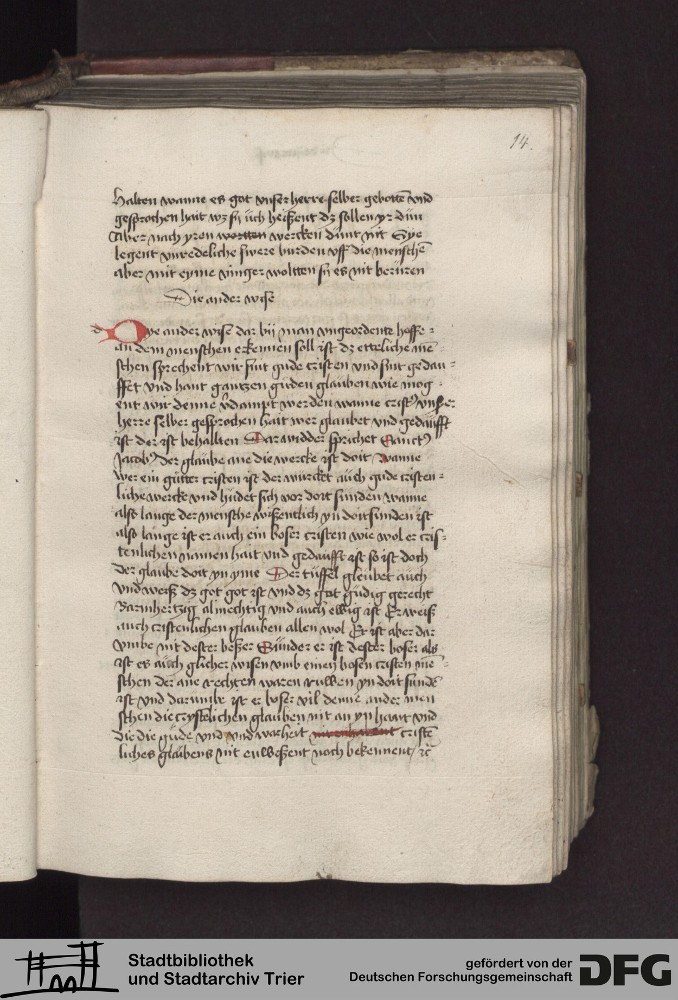 14.
halten wanne es got unser herre selber gebotten und
gesprochen hait wz sy uch heissent dz sollen yr dun
Aber nach yren wortten wercken dunt nit Sye
legent unredeliche swere burden uff die menschen
aber mit eyme vinger woltten sy es nit beruren
Die ander wise
Dye ander wise dar bij man ungeordente hoffe-
an dem menschen erkennen soll ist dz etteliche men-
schen sprechent wir sint gude cristen und sint gedau-
ffet und hant gantzen guden glauben wie mog-
ent wir denne verdampt werden wanne cristus unser
herre selber gesprochen hait wer glaubet und gedaufft
ist der ist behalten Dar widder sprichet Sanctus
Jacobus Der glaube ane die wercke ist doit Wanne
wer ein gutter cristen ist der wurcket auch gude cristen-
liche wercke und hudet sich vor doit sunden wanne
also lange der mensche wissentlich yn doit sunden ist
also lange ist er auch ein boser cristen wie wol er cris-
tenlichen namen hait und gedaufft ist so ist doch
der glaube doit yn yme Der tuffel gleubet auch
und weiß dz got got ist und dz got gudig gerecht
Barmhertzig almechtig und auch ewig ist Er weiß
auch cristenlichen glauben allen wol Er ist aber dar
umbe nit dester besser Sunder er ist dester boser als
ist es auch glicher wisen umb einen bosen cristen men-
schen der ane rechten waren ruwen yn doit sunden
ist und darumbe ist er boser vil denne ander men
schen die crystelichen glauben nit an yn haant und
die die gude und und warheit cristen
liches glaubens nit enwessent noch bekennent / etc
Stadtbibliothek
und Stadtarchiv Trier
gefördert von der
Deutschen Forschungsgemeinschaft
DFG